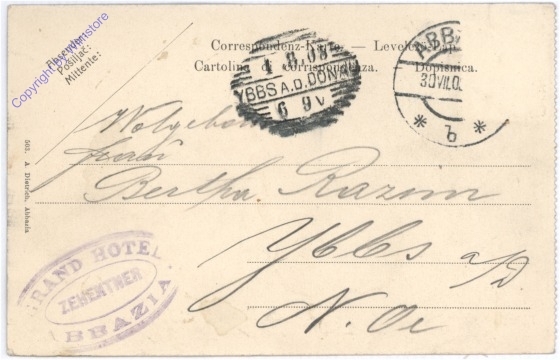 Copyright by vonstore
Absender:
Pošiljač:
Mittente:
Correspondenz-Karte. — Levelező-Lap.
Cartolina di corrispondenza. Dopisnica.
1 8 08
YBBS A.D. DONAU
6 9V
ABB
30 VII.0
* b *
Wolgeboren
Frau
Bertha Razim
Ybbs a/D.
N. Oe
GRAND HOTEL
ZEHENTNER
ABBAZIA
502. A. Dietrich, Abbazia